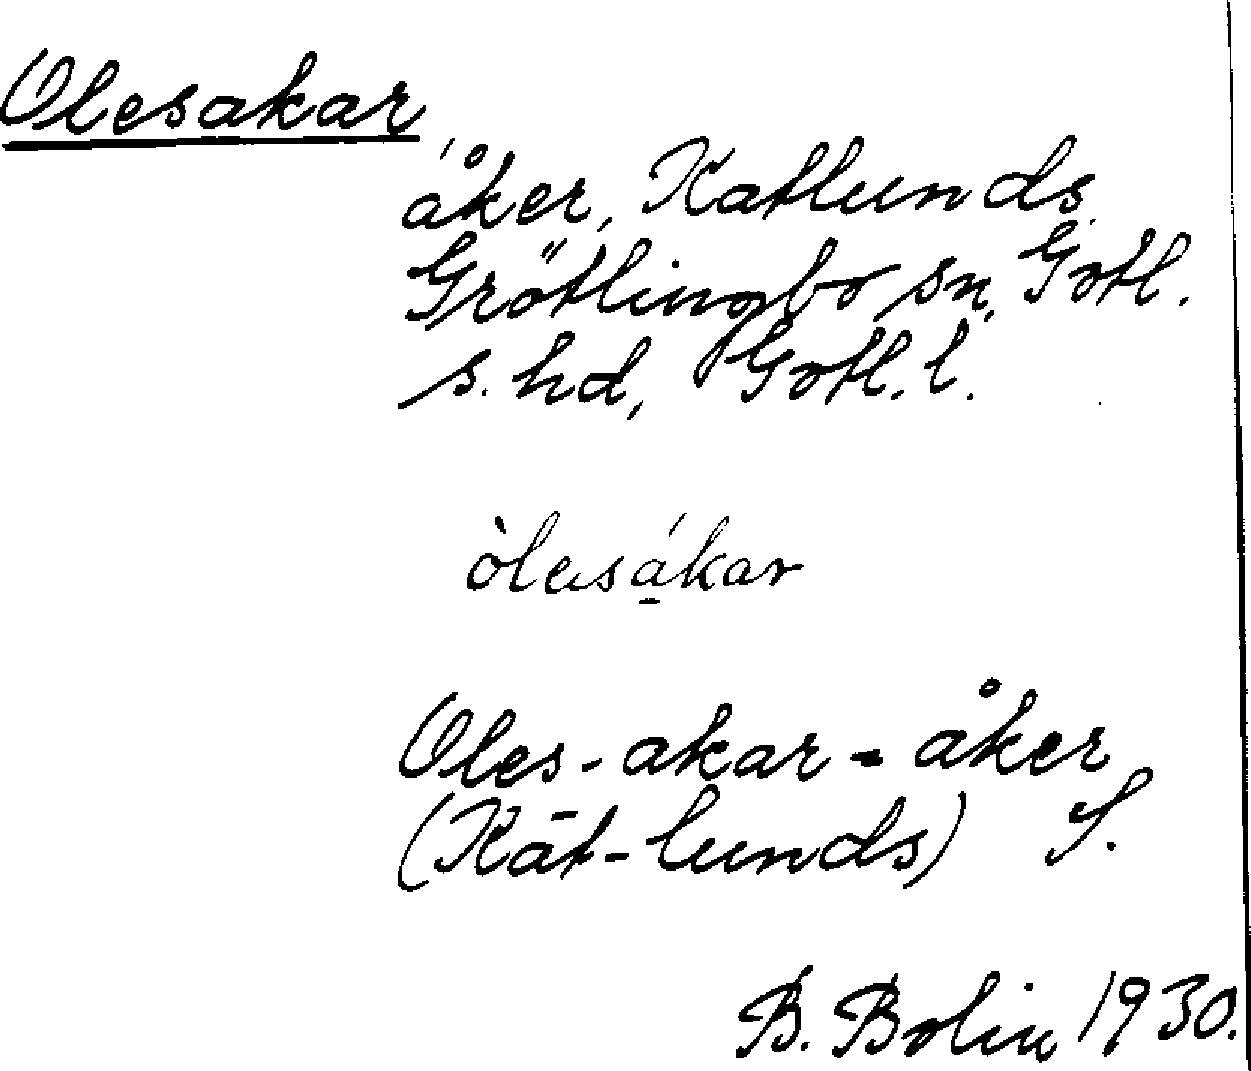 Olesakar,
åker, Katlunds
Grötlingbo sn, Gotl.
s. hd, Gotl. l.
òlesákar
Oles-akar = åker
(Kāt-lunds) S.
B. Bolin 1930.